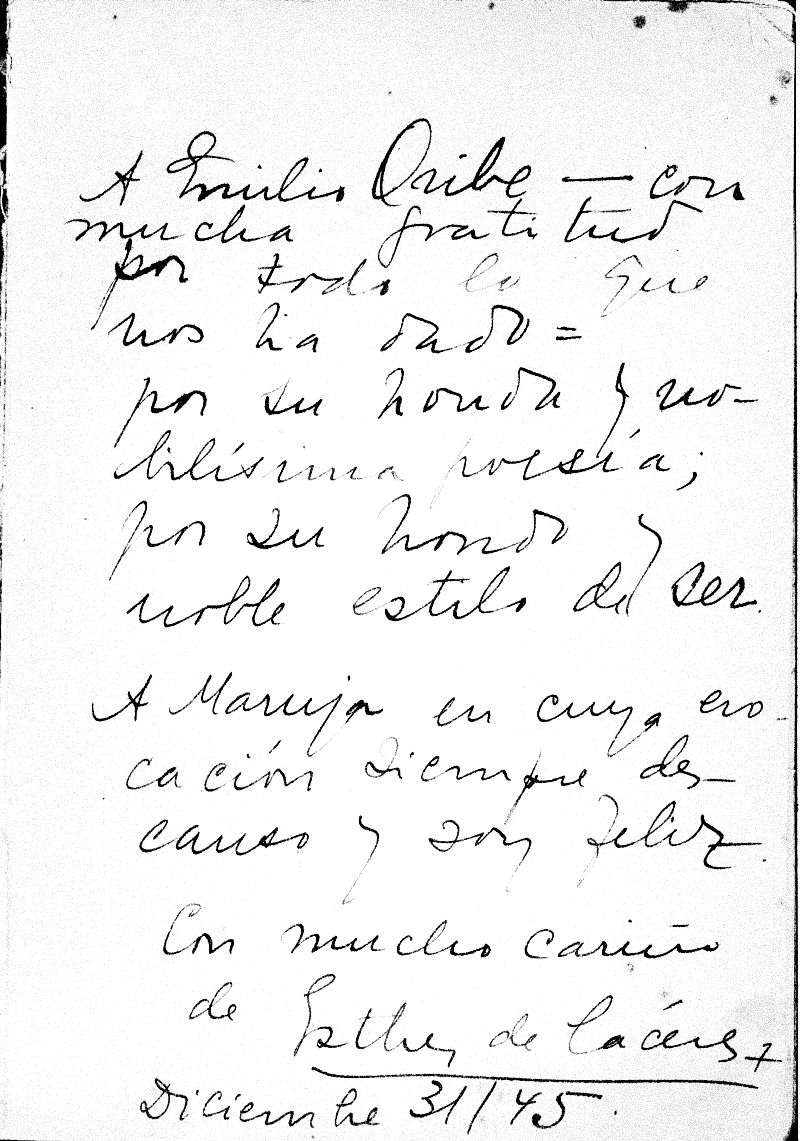 A Emilio Oribe — con
mucha gratitud
por todo lo que
nos ha dado =
por su honda y no-
bilísima poesía;
por su hondo y
noble estilo de ser.
A Maruja en cuya evo-
cación siempre des-
canso y soy feliz.
Con mucho cariño
de Esther de Cáceres
Diciembre 31/45.